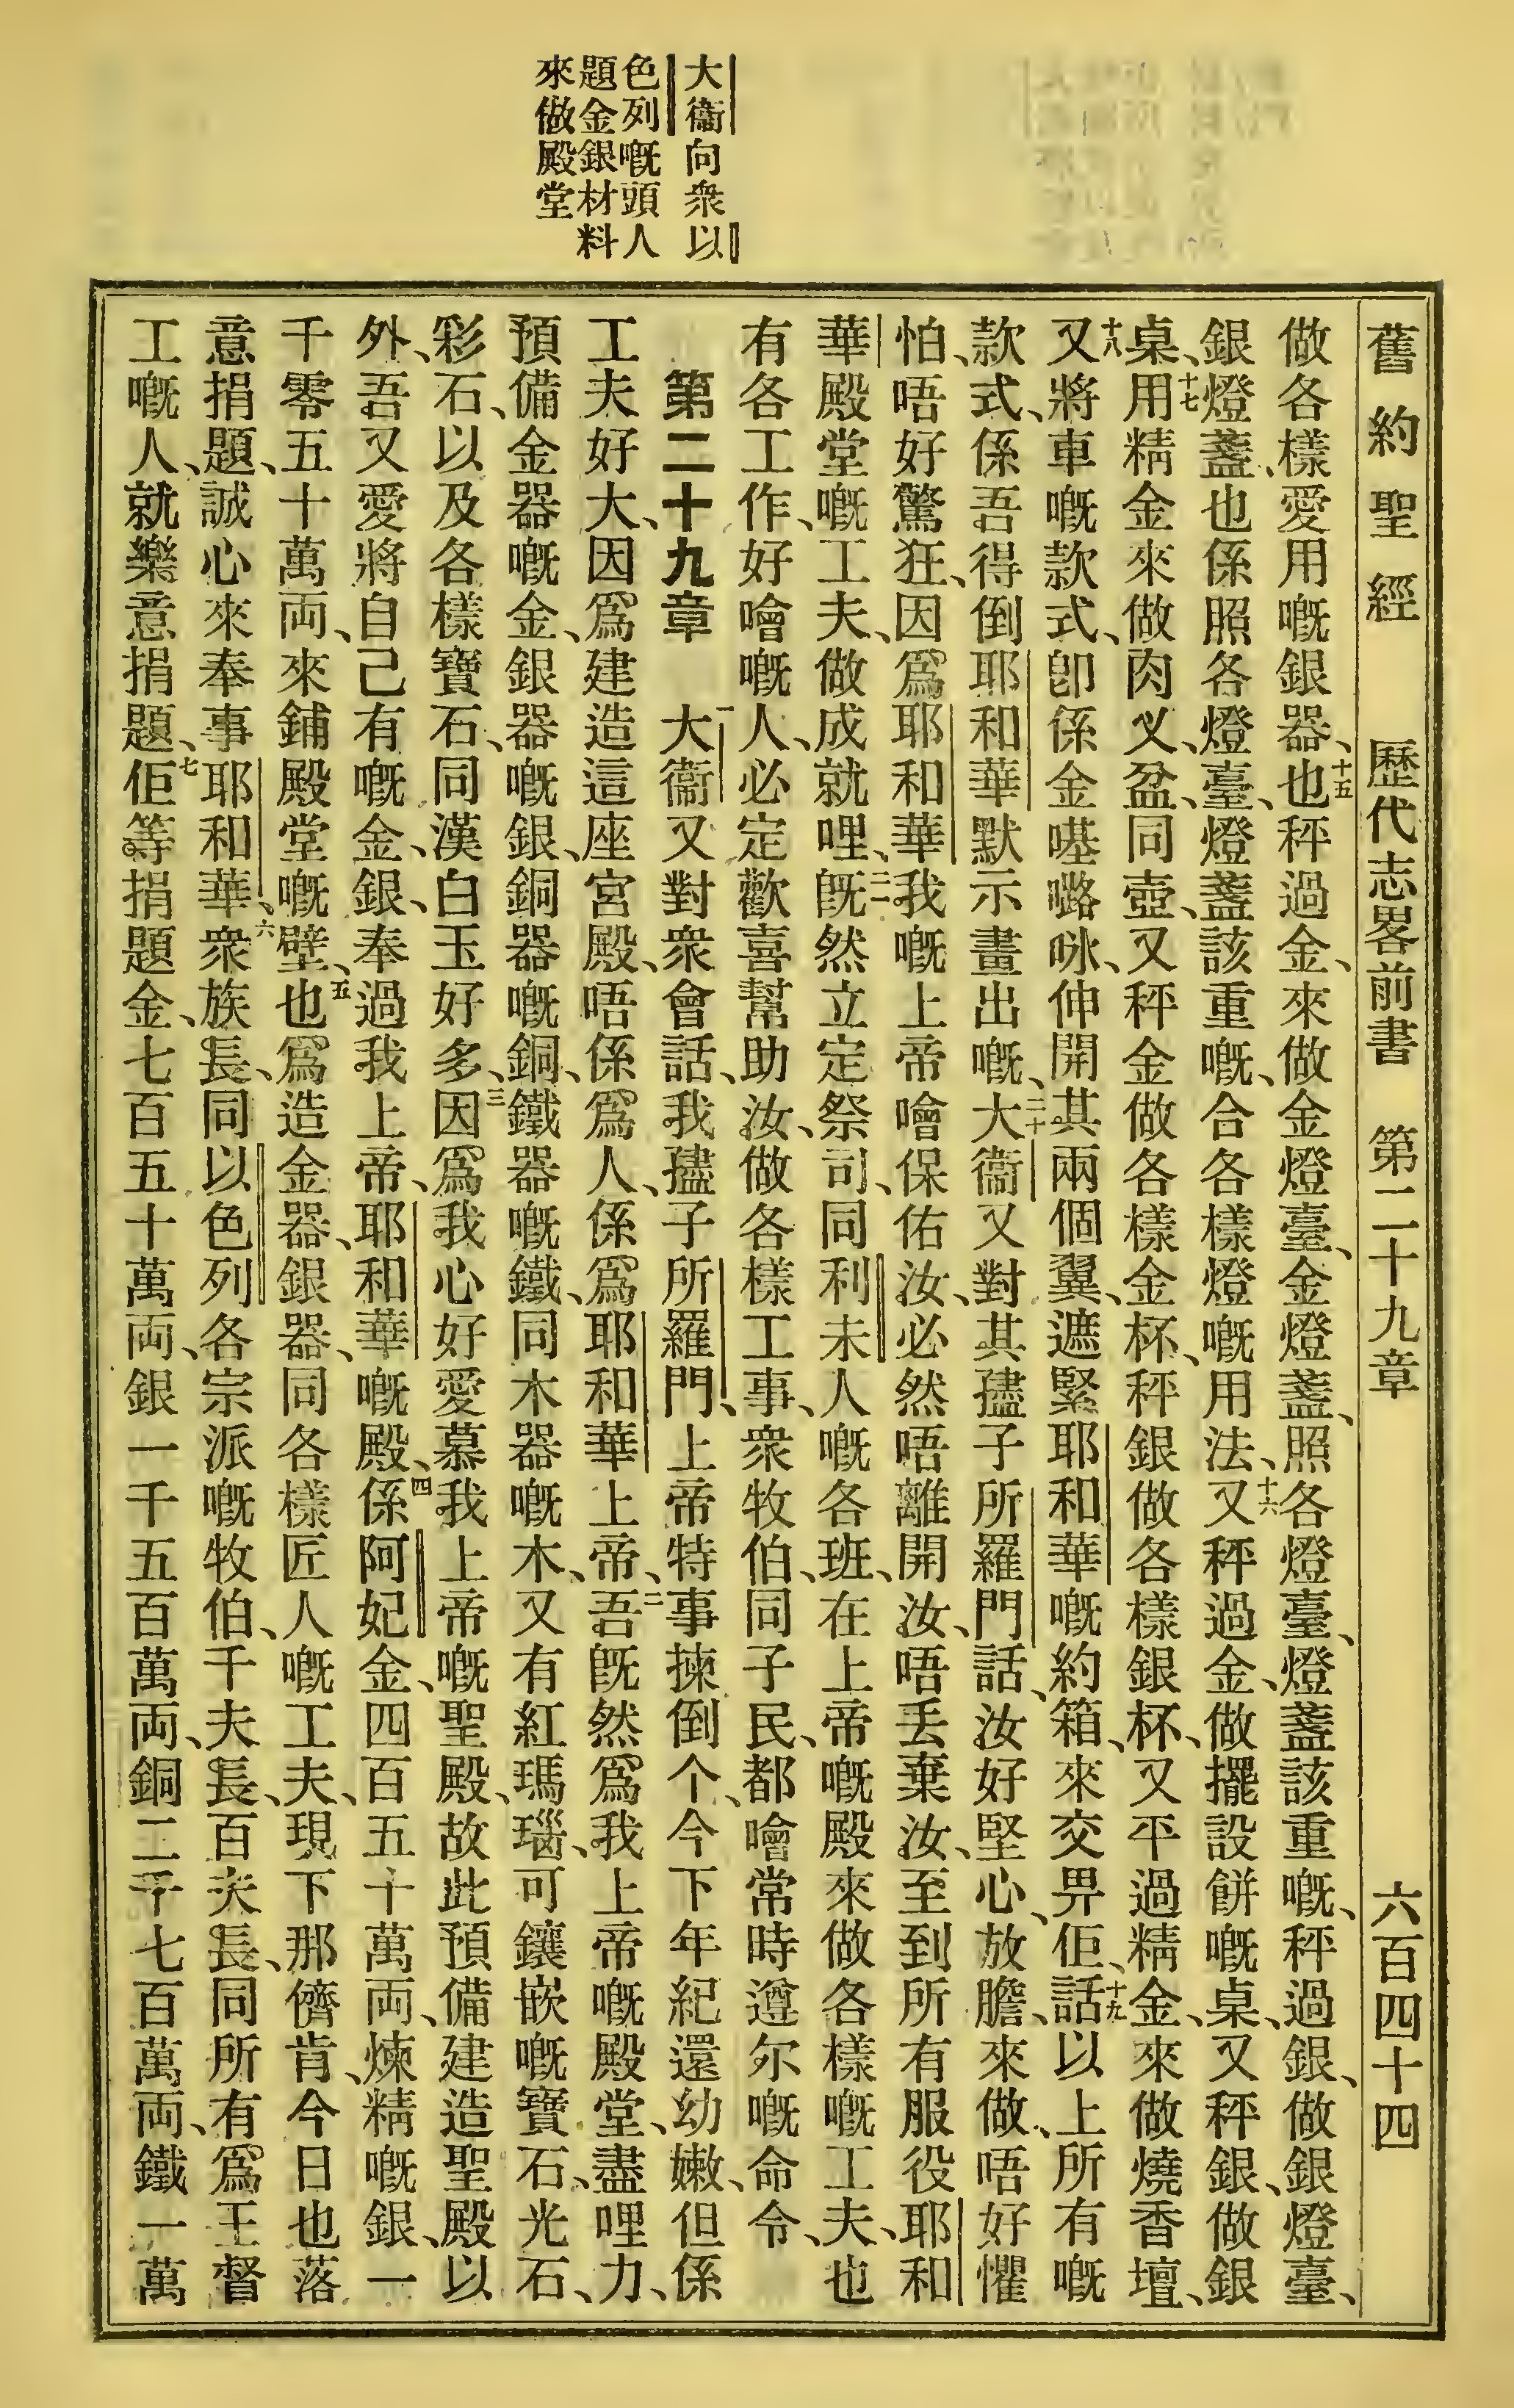 大衞向衆以
色列嘅頭人
題金銀材料
來做殿堂
舊約聖經 歷代志畧前書 第二十九章 六百四十四
做各樣愛用嘅銀器、十五也秤過金、來做金燈臺、金燈盞、照各燈臺、燈盞該重嘅、秤過銀、做銀燈臺、
銀燈盞、也係照各燈臺、燈盞該重嘅、合各樣燈嘅用法、十六又秤過金、做擺設餅嘅桌、又秤銀、做銀
桌、十七用精金來做肉义、盆、同壺、又秤金做各樣金杯、秤銀做各樣銀杯、又平過精金、來做燒香壇、
十八又將車嘅款式、卽係金𠸄嚕咏、伸開其兩個翼、遮緊耶和華嘅約箱、來交畀佢、十九話以上所有嘅
款式、係吾得倒耶和華默示畫出嘅、二十大衞又對其𡥧子所羅門話、汝好堅心、放膽、來做、唔好懼
怕、唔好驚狂、因爲耶和華我嘅上帝噲保佑汝、必然唔離開汝、唔丢棄汝、至到所有服役耶和
華殿堂嘅工夫、做成就哩、二一旣然立定祭司、同利未人嘅各班、在上帝嘅殿來做各樣嘅工夫、也
有各工作、好噲嘅人、必定歡喜幫助汝、做各樣工事、衆牧伯、同子民、都噲常時遵尔嘅命令、
第二十九章 一大衞又對衆會話、我𡥧子所羅門、上帝特事揀倒个、今下年紀還幼嫩、但係
工夫好大、因爲建造這座宮殿、唔係爲人、係爲耶和華上帝、二吾旣然爲我上帝嘅殿堂、盡哩力、
預備金器嘅金、銀器嘅銀、銅器嘅銅、鐵器嘅鐵、同木器嘅木、又有紅瑪瑙、可鑲嵌嘅寶石、光石、
彩石、以及各樣寶石、同漢白玉好多、三因爲我心好愛慕我上帝嘅聖殿、故此預備建造聖殿以
外、吾又愛將自己有嘅金、銀、奉過我上帝、耶和華嘅殿、四係阿妃金、四百五十萬両、煉精嘅銀、一
千零五十萬両、來鋪殿堂嘅壁、五也爲造金器、銀器、同各樣匠人嘅工夫、現下那儕肯、今日也落
意捐題、誠心來奉事耶和華、六衆族長、同以色列各宗派嘅牧伯、千夫長、百夫長、同所有爲王督
工嘅人、就樂意捐題、七佢等捐題金、七百五十萬両、銀一千五百萬両、銅二千七百萬両、鐵一萬